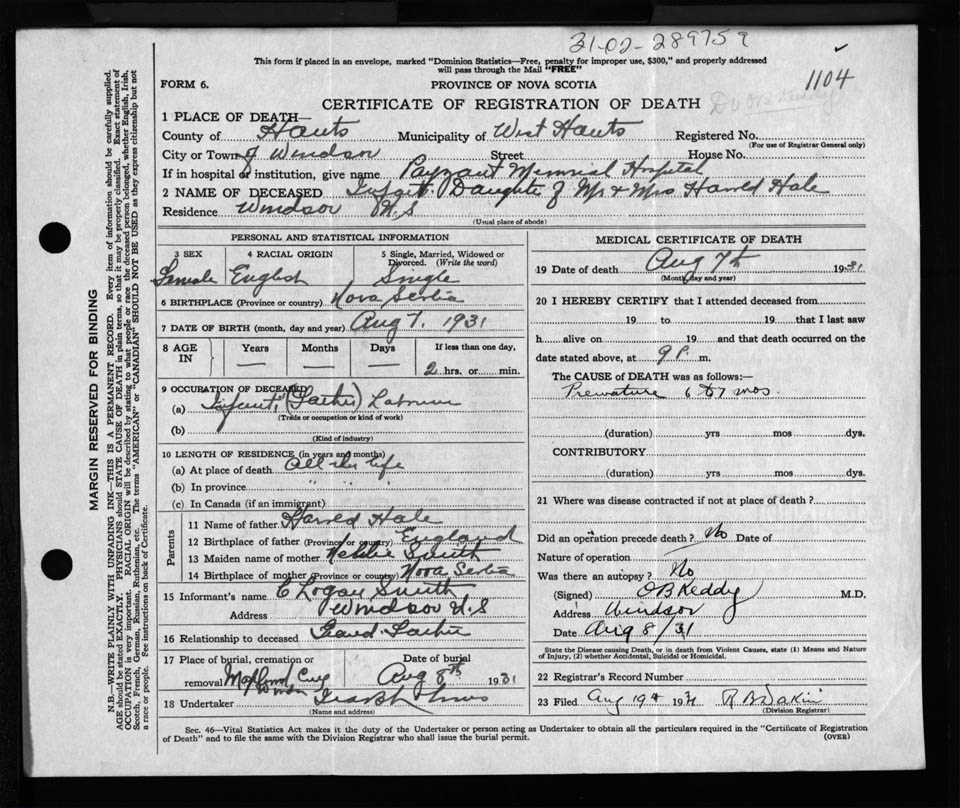 31-02-289759
This form if placed in an envelope, marked "Dominion Statistics—Free, penalty for improper use, $300," and properly addressed
will pass through the Mail "FREE"
1104
FORM 6.
PROVINCE OF NOVA SCOTIA
CERTIFICATE OF REGISTRATION OF DEATH
1 PLACE OF DEATH—
County of Hants Municipality of West Hants Registered No.
(For use of Registrar General only)
City or Town of Windsor Street House No.
If in hospital or institution, give name Payzant Memorial Hospital
2 NAME OF DECEASED Infant Daughter of Mr & Mrs Harold Hale
Residence Windsor N.S
(Usual place of abode)
PERSONAL AND STATISTICAL INFORMATION
3 SEX 4 RACIAL ORIGIN 5 Single, Married, Widowed or Divorced. (Write the word)
Female English Single
6 BIRTHPLACE (Province or country) Nova Scotia
7 DATE OF BIRTH (month, day and year) Aug 7, 1931
8 AGE IN Years Months Days If less than one day,
2 hrs. or min.
9 OCCUPATION OF DECEASED
(a) Infant, (Father) Laborer
(Trade or occupation or kind of work)
(b)
(Kind of industry)
10 LENGTH OF RESIDENCE (in years and months)
(a) At place of death All its life
(b) In province " " "
(c) In Canada (if an immigrant)
Parents
11 Name of father Harold Hale
12 Birthplace of father (Province or country) England
13 Maiden name of mother Nellie Smith
14 Birthplace of mother (Province or country) Nova Scotia
15 Informant's name C Logan Smith
Address Windsor N.S
16 Relationship to deceased Grand-father
17 Place of burial, cremation or removal Date of burial
Windsor Aug 8th 1931
18 Undertaker
(Name and address)
MEDICAL CERTIFICATE OF DEATH
19 Date of death Aug 7th 1931
(Month, day and year)
20 I HEREBY CERTIFY that I attended deceased from
19 to 19 that I last saw
h alive on 19 and that death occurred on the
date stated above, at 9 P. m.
The CAUSE of DEATH was as follows:—
Premature 6 to 7 mos.
(duration) yrs mos. dys.
CONTRIBUTORY
(duration) yrs mos. dys.
21 Where was disease contracted if not at place of death?
Did an operation precede death? No Date of
Nature of operation
Was there an autopsy? No
(Signed) O B Keddy M.D.
Address Windsor
Date Aug 8/31
State the Disease causing Death, or in death from Violent Causes, state (1) Means and Nature
of Injury, (2) whether Accidental, Suicidal or Homicidal.
22 Registrar's Record Number
23 Filed Aug 19th 1931 R B Dakin
(Division Registrar)
Sec. 46—Vital Statistics Act makes it the duty of the Undertaker or person acting as Undertaker to obtain all the particulars required in the "Certificate of Registration
of Death" and to file the same with the Division Registrar who shall issue the burial permit. (OVER)
MARGIN RESERVED FOR BINDING
N.B.—WRITE PLAINLY WITH UNFADING INK—THIS IS A PERMANENT RECORD. Every item of information should be carefully supplied.
AGE should be stated EXACTLY. PHYSICIANS should STATE CAUSE OF DEATH in plain terms, so that it may be properly classified. Exact statement of
OCCUPATION is very important. RACIAL ORIGIN will be described by stating to what people or race the deceased person belonged, whether English, Irish,
Scotch, French, German, Russian, Ruthenian, etc. The terms "AMERICAN" or "CANADIAN" SHOULD NOT BE USED as they express citizenship but not
a race or people. See instructions on back of Certificate.